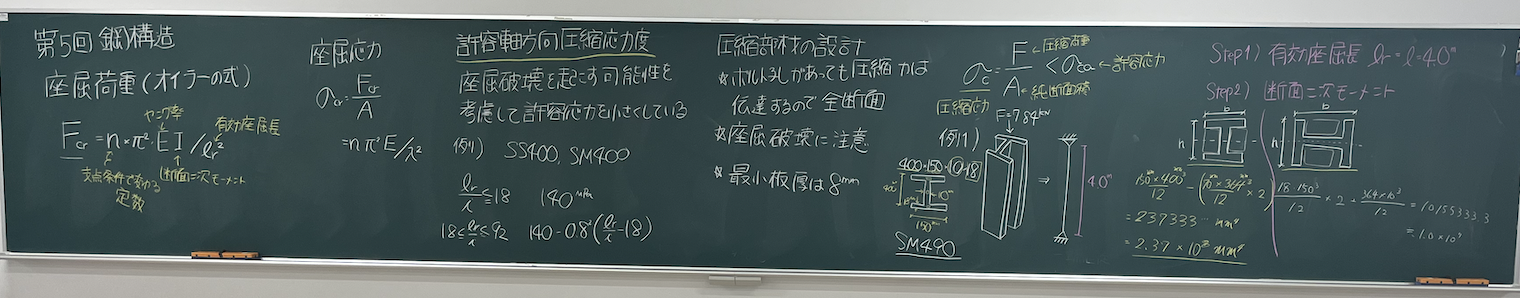 第5回 鋼構造
座屈荷重(オイラーの式)
ヤング率
F_cr = n × π² · E I / l_r²
有効座屈長
断面二次モーメント
支点条件で変わる
定数
座屈応力
σ_cr = F_cr / A
= n π² E / λ²
許容軸方向圧縮応力度
座屈破壊を起こす可能性を
考慮して許容応力を小さくしている
例) SS400, SM400
l_r / i ≦ 18 140 MPa
18 ≦ l_r / i ≦ 92 140 - 0.8 (l_r / i - 18)
圧縮部材の設計
* ボルト孔があっても圧縮力は
伝達するので全断面
* 座屈破壊に注意
* 最小板厚は8mm
σ_c = F / A < σ_ca
← 圧縮荷重
← 許容応力
← 純断面積
圧縮応力
F=784 kN
例1)
400×150×10×18
400
18
10
150
SM490
⇒
4.0m
Step1) 有効座屈長 l_r = l = 4.0m
Step2) 断面二次モーメント
b
h
b
h
150 × 400³ / 12 - (70 × 364³ / 12 × 2)
= 237333… mm⁴
= 2.37 × 10⁸ mm⁴
18 · 150³ / 12 × 2 + 364 × 10³ / 12 = 10155333.3
≒ 1.0 × 10⁷